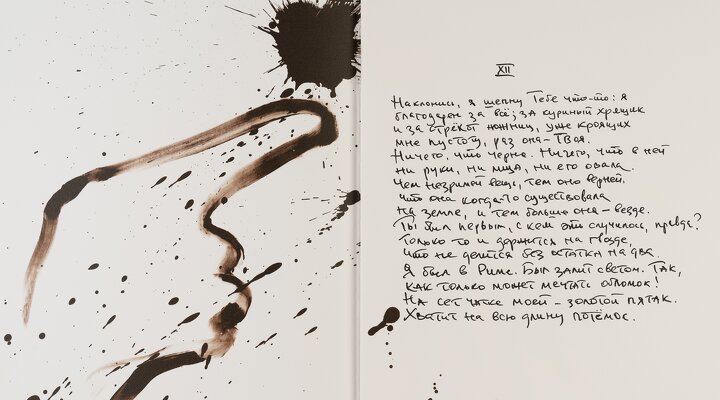 XII
Наклонись, я шепну Тебе что-то: я
благодарен за всё; за куриный хрящик
и за стрекот ножниц, уже кроящих
мне пустоту, раз она - Твоя.
Ничего, что черна. Ничего, что в ней
ни руки, ни лица, ни его овала.
Чем незримей вещь, тем оно верней,
что она когда-то существовала
на земле, и тем больше она - везде.
Ты был первым, с кем это случилось, правда?
Только то и держится на гвозде,
что не делится без остатка на два.
Я был в Риме. Был залит светом. Так,
как только может мечтать обломок!
На сетчатке моей - золотой пятак.
Хватит на всю длину потёмок.